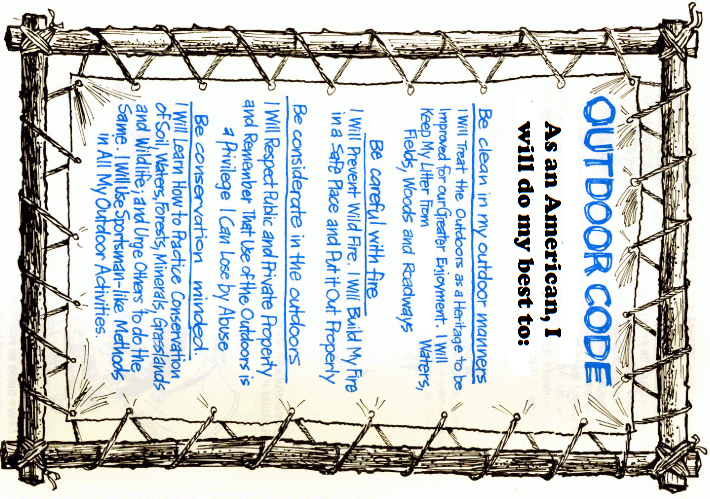 OUTDOOR CODE
As an American, I
will do my best to:
Be clean in my outdoor manners
I Will Treat the Outdoors as a Heritage to be
Improved for our Greater Enjoyment. I Will
Keep My Litter From Waters,
Fields, Woods and Roadways
Be careful with fire
I Will Prevent Wild Fire. I Will Build My Fire
in a Safe Place and Put it Out Properly
Be considerate in the outdoors
I Will Respect Public and Private Property
and Remember That Use of the Outdoors is
a Privilege I Can Lose by Abuse
Be conservation minded
I Will Learn How to Practice Conservation
of Soil, Waters, Forests, Minerals, Grasslands
and Wildlife, and Urge Others to do the
Same. I Will Use Sportsman-like Methods
in All My Outdoor Activities.